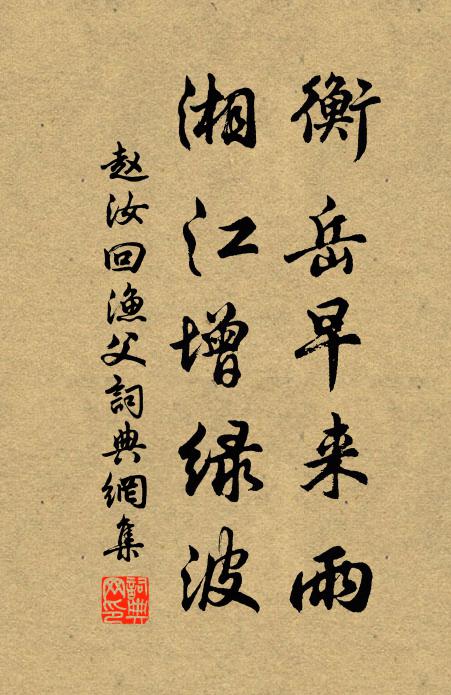 衡岳早来雨
湘江增绿波
赵汝回渔父詞典網集
詞典網印